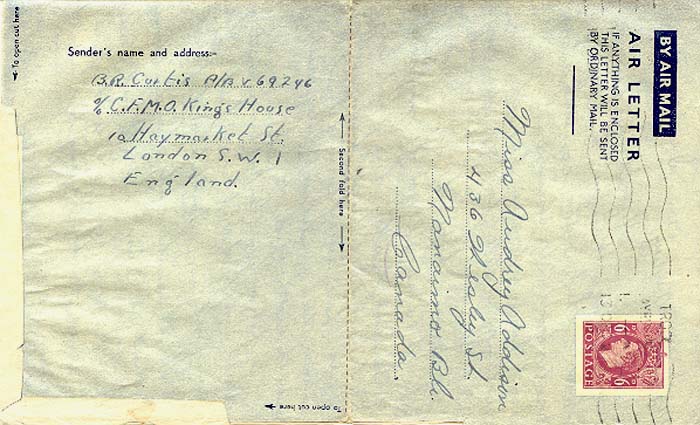 To open cut here
Sender's name and address:-
B.R. Curtis A/B V69246
c/o C.F.M.O. Kings House
10 Haymarket St.
London S.W. 1
England.
Second fold here
To open cut here
BY AIR MAIL
AIR LETTER
IF ANYTHING IS ENCLOSED
THIS LETTER WILL BE SENT
BY ORDINARY MAIL.
Miss Audrey Addison
436 Wesley St.
Nanaimo B.C.
Canada.
6D 6D
POSTAGE